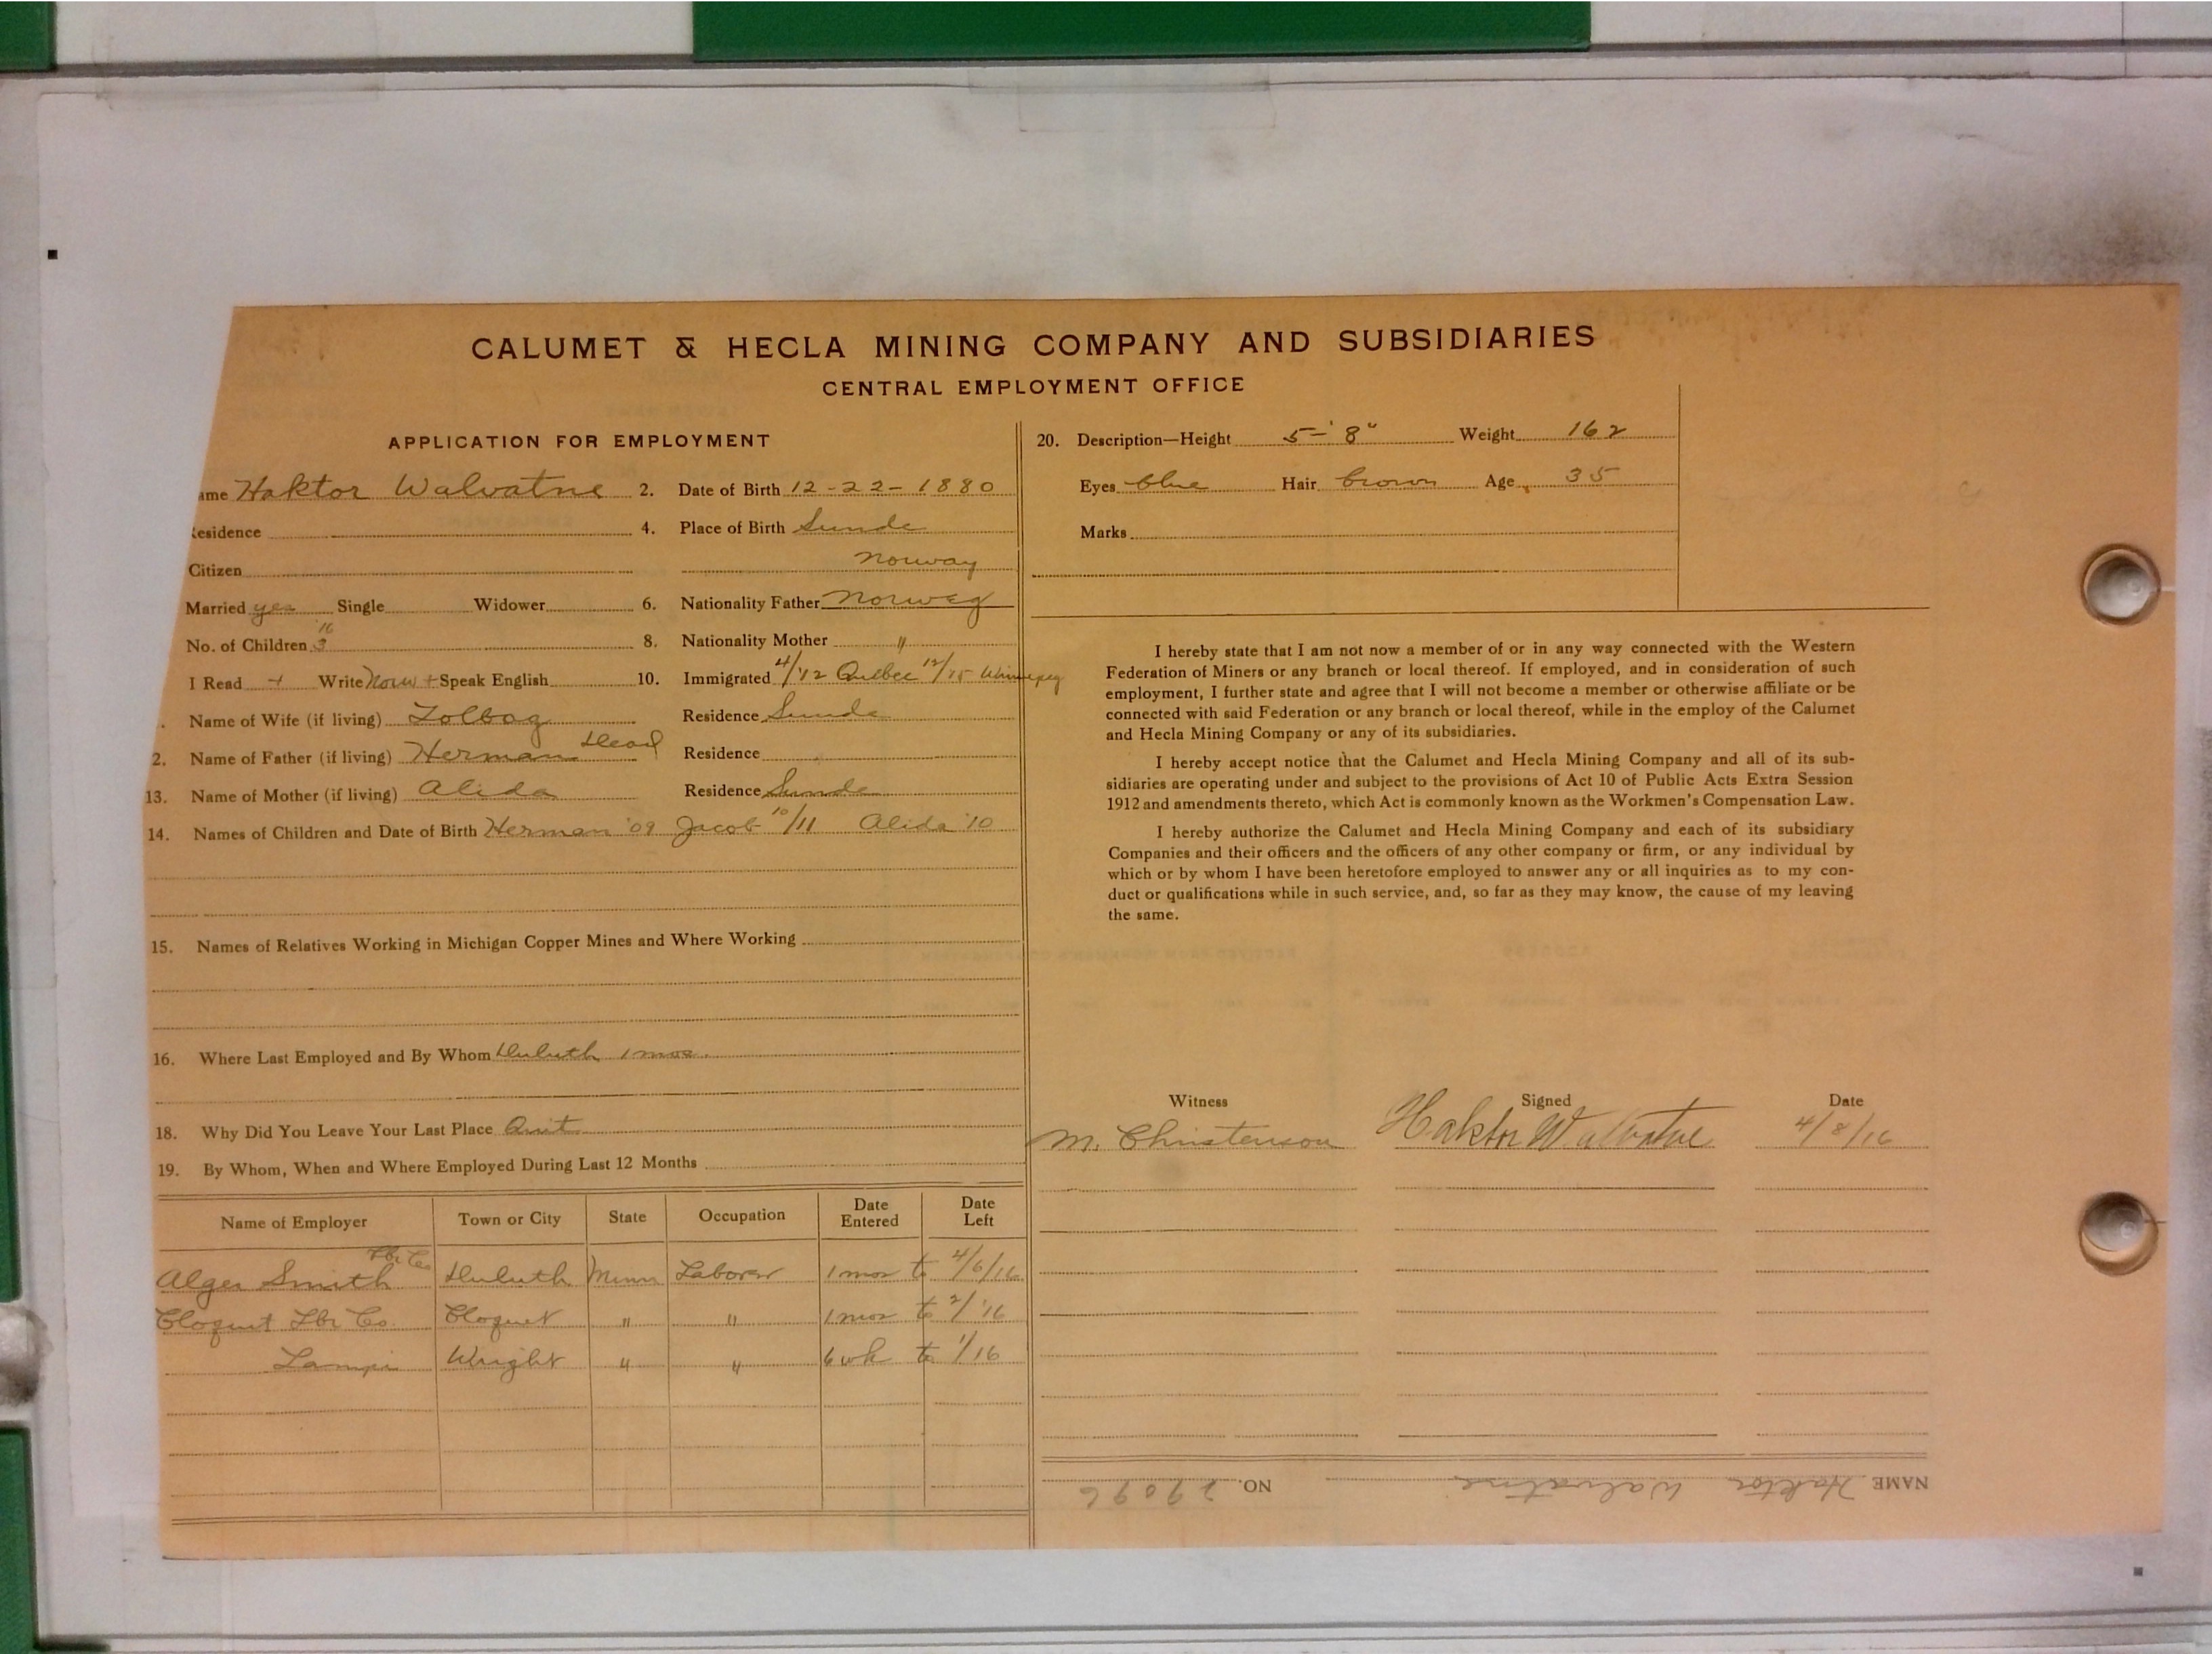 CALUMET & HECLA MINING COMPANY AND SUBSIDIARIES
CENTRAL EMPLOYMENT OFFICE
APPLICATION FOR EMPLOYMENT
ame Haktor Walvatne 2. Date of Birth 12-22-1880
esidence 4. Place of Birth Sunde
Norway
Citizen
Married yes Single Widower 6. Nationality Father Norweg
No. of Children 3 8. Nationality Mother "
I Read + Write Norw + Speak English 10. Immigrated 4/'12 Quebec 12/15 Winnipeg
. Name of Wife (if living) Residence Sunde
2. Name of Father (if living) Herman Dead Residence
13. Name of Mother (if living) Alida Residence Sunde
14. Names of Children and Date of Birth Herman '09 Jacob 10/11 Alida '10
15. Names of Relatives Working in Michigan Copper Mines and Where Working
16. Where Last Employed and By Whom Duluth 1 mos.
18. Why Did You Leave Your Last Place Quit
19. By Whom, When and Where Employed During Last 12 Months
Name of Employer Town or City State Occupation Date Entered Date Left
Alger Smith Lbr Co Duluth Minn Laborer 1 mos to 4/6/16
Cloquet Lbr Co. Cloquet " " 1 mos to 2/'16
Lampi Wright " " 6 wk to 1/16
20. Description—Height 5-'8" Weight 162
Eyes blue Hair brown Age 35
Marks
I hereby state that I am not now a member of or in any way connected with the Western
Federation of Miners or any branch or local thereof. If employed, and in consideration of such
employment, I further state and agree that I will not become a member or otherwise affiliate or be
connected with said Federation or any branch or local thereof, while in the employ of the Calumet
and Hecla Mining Company or any of its subsidiaries.
I hereby accept notice that the Calumet and Hecla Mining Company and all of its sub-
sidiaries are operating under and subject to the provisions of Act 10 of Public Acts Extra Session
1912 and amendments thereto, which Act is commonly known as the Workmen's Compensation Law.
I hereby authorize the Calumet and Hecla Mining Company and each of its subsidiary
Companies and their officers and the officers of any other company or firm, or any individual by
which or by whom I have been heretofore employed to answer any or all inquiries as to my con-
duct or qualifications while in such service, and, so far as they may know, the cause of my leaving
the same.
Witness Signed Date
M. Christenson Haktor Walvatne 4/8/16
NAME Haktor Walvatne NO. 29096